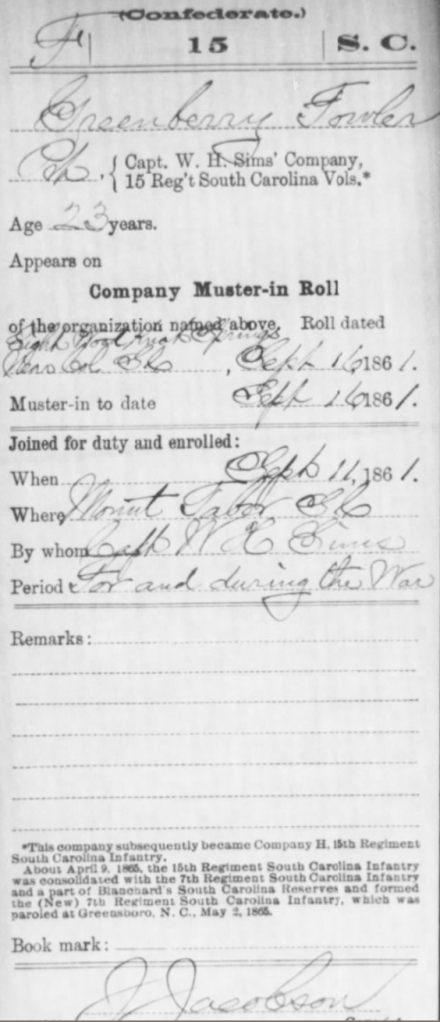 (Confederate.)
F | 15 | S. C.
Greenberry Fowler
Capt. W. H. Sims' Company,
15 Reg't South Carolina Vols.*
Age 23 years.
Appears on
Company Muster-in Roll
of the organization named above. Roll dated
Light Wood Knot Springs
Near Col SC, Sept 16 1861.
Muster-in to date Sept 16 1861.
Joined for duty and enrolled:
When Sept 11, 1861.
Where Mount Tabor SC
By whom Capt W H Sims
Period For and during the War
Remarks:
*This company subsequently became Company H, 15th Regiment
South Carolina Infantry.
About April 9, 1865, the 15th Regiment South Carolina Infantry
was consolidated with the 7th Regiment South Carolina Infantry
and a part of Blanchard's South Carolina Reserves and formed
the (New) 7th Regiment South Carolina Infantry, which was
paroled at Greensboro, N. C., May 2, 1865.
Book mark:
J Jacobson